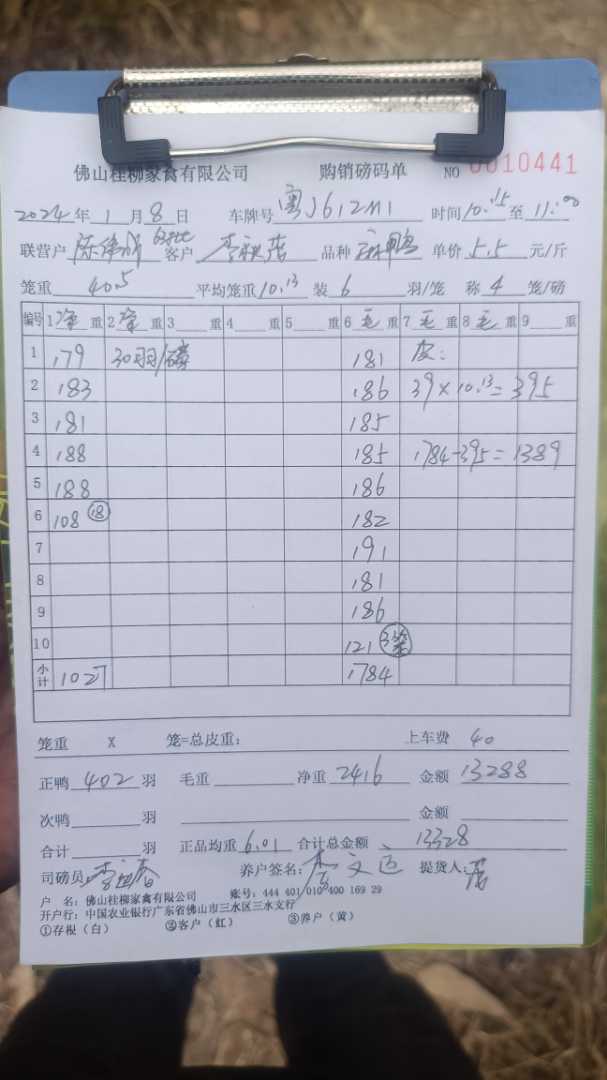 佛山桂柳家禽有限公司 购销磅码单 NO 0010441
2024年1月8日 车牌号 粤J612M1 时间10.15至11.00
联营户 客户 品种 麻鸭 单价5.5元/斤
笼重40.5 平均笼重10.13 装6羽/笼 称4笼/磅
编号 1净重 2净重 3重 4重 5重 6毛重 7毛重 8毛重 9重
1 179 30羽/磅 181 皮:
2 183 186 39×10.13=395
3 181 185
4 188 185 1784-395=1389
5 188 186
6 108 18 182
7 191
8 181
9 186
10 121 3笼
小计 1027 1784
笼重 X 笼=总皮重: 上车费 40
正鸭402羽 毛重 净重2416 金额13288
次鸭 羽 金额
合计 羽 正品均重6.01 合计总金额13328
司磅员: 养户签名: 提货人:
户 名: 佛山桂柳家禽有限公司 账号: 444 401 010 400 169 29
开户行: 中国农业银行广东省佛山市三水区三水支行
①存根(白) ②客户(红) ③养户(黄)